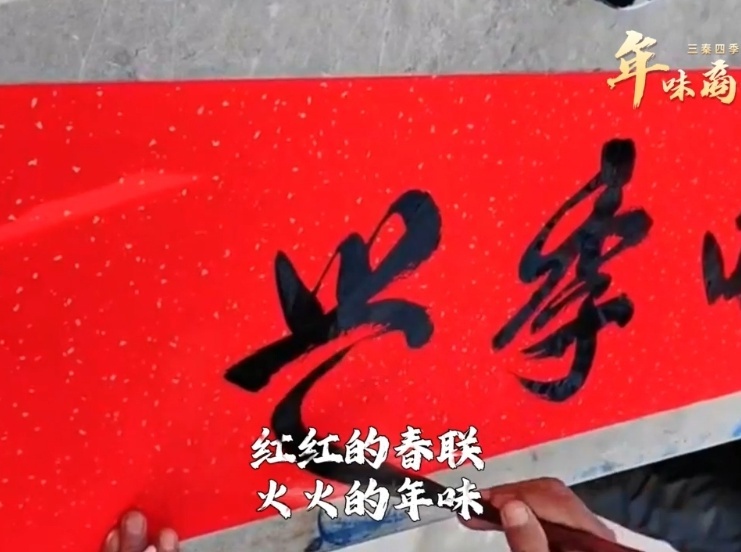 三秦四季
年味商
季兴
红红的春联
火火的年味